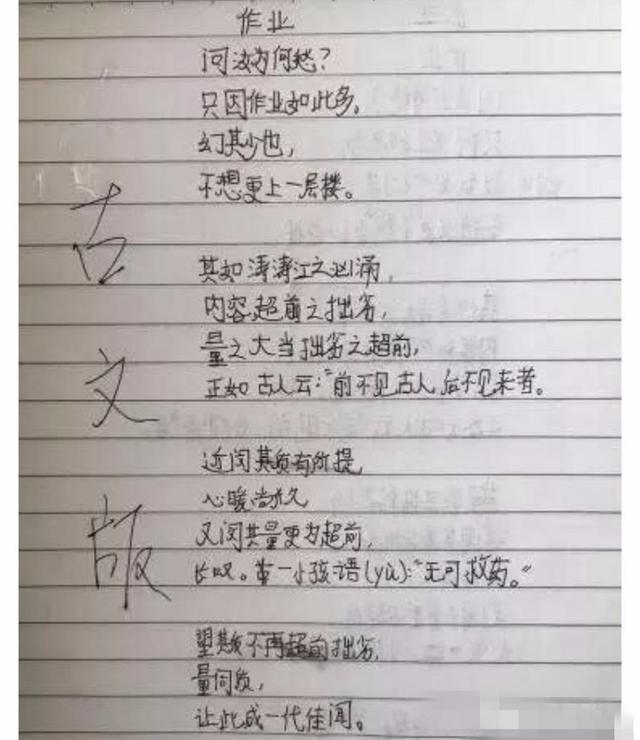 作业
问汝为何愁？
只因作业如此多。
幻其少也，
不想更上一层楼。
其如涛涛江之汹涌，
内容超前之拙劣，
量之大当拙劣之超前，
正如古人云：“前不见古人后不见来者。
近闻其质有所提，
心暖尚永久
又闻其量更为超前，
长叹。第一小孩语(yù)：“无可救药。”
望其质不再拙劣，
量同质，
让此成一代佳闻。
古文版